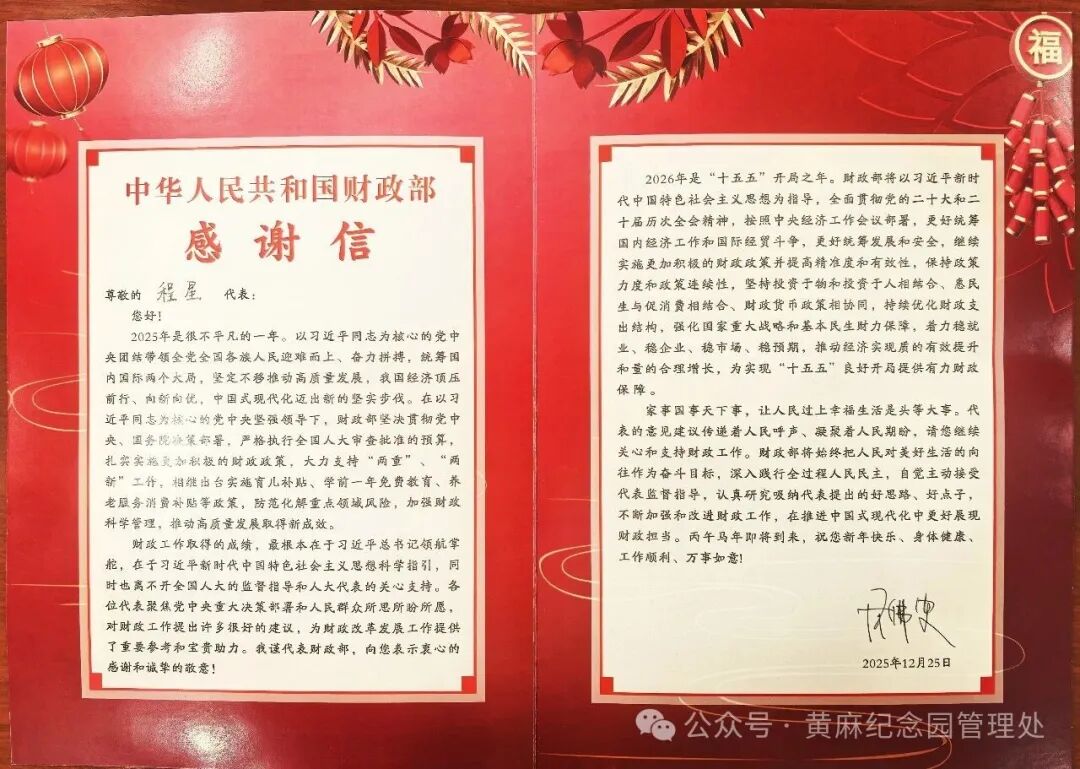 中华人民共和国财政部
感谢信
尊敬的 程星 代表：
您好！
2025年是很不平凡的一年。以习近平同志为核心的党中
央团结带领全党全国各族人民迎难而上、奋力拼搏，统筹国
内国际两个大局，坚定不移推动高质量发展，我国经济顶压
前行、向新向优，中国式现代化迈出新的坚实步伐。在以习
近平同志为核心的党中央坚强领导下，财政部坚决贯彻党中
央、国务院决策部署，严格执行全国人大审查批准的预算，
扎实实施更加积极的财政政策，大力支持“两重”、“两
新”工作，相继出台实施育儿补贴、学前一年免费教育、养
老服务消费补贴等政策，防范化解重点领域风险，加强财政
科学管理，推动高质量发展取得新成效。
财政工作取得的成绩，最根本在于习近平总书记领航掌
舵，在于习近平新时代中国特色社会主义思想科学指引，同
时也离不开全国人大的监督指导和人大代表的关心支持。各
位代表聚焦党中央重大决策部署和人民群众所思所盼所愿，
对财政工作提出许多很好的建议，为财政改革发展工作提供
了重要参考和宝贵助力。我谨代表财政部，向您表示衷心的
感谢和诚挚的敬意！
福
2026年是“十五五”开局之年。财政部将以习近平新时
代中国特色社会主义思想为指导，全面贯彻党的二十大和二
十届历次全会精神，按照中央经济工作会议部署，更好统筹
国内经济工作和国际经贸斗争，更好统筹发展和安全，继续
实施更加积极的财政政策并提高精准度和有效性，保持政策
力度和政策连续性，坚持投资于物和投资于人相结合、惠民
生与促消费相结合、财政货币政策相协同，持续优化财政支
出结构，强化国家重大战略和基本民生财力保障，着力稳就
业、稳企业、稳市场、稳预期，推动经济实现质的有效提升
和量的合理增长，为实现“十五五”良好开局提供有力财政
保障。
家事国事天下事，让人民过上幸福生活是头等大事。代
表的意见建议传递着人民呼声、凝聚着人民期盼，请您继续
关心和支持财政工作。财政部将始终把人民对美好生活的向
往作为奋斗目标，深入践行全过程人民民主，自觉主动接受
代表监督指导，认真研究吸纳代表提出的好思路、好点子，
不断加强和改进财政工作，在推进中国式现代化中更好展现
财政担当。丙午马年即将到来，祝您新年快乐、身体健康、
工作顺利、万事如意！
2025年12月25日
公众号·黄麻纪念园管理处